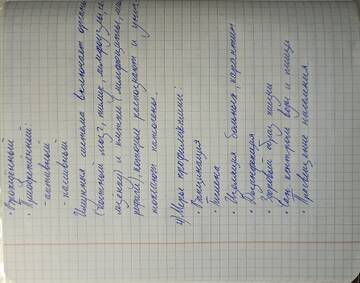 • Врожденный
• Приобретённый
- активный
- пассивный
Имунная система включает органы
(костный мозг, тимус, лимфоузлы, се
лезенку) и клетки (лимфоциты, мак
рофаги), которые распознают и унич
тожают патогены.
4) Меры профилактики:
• Вакцинация
• Гигиена
• Изоляция больных, карантин
• Дезинфекция
• Здоровый образ жизни
• Сан контроль воды и пищи
• Просвещение населения